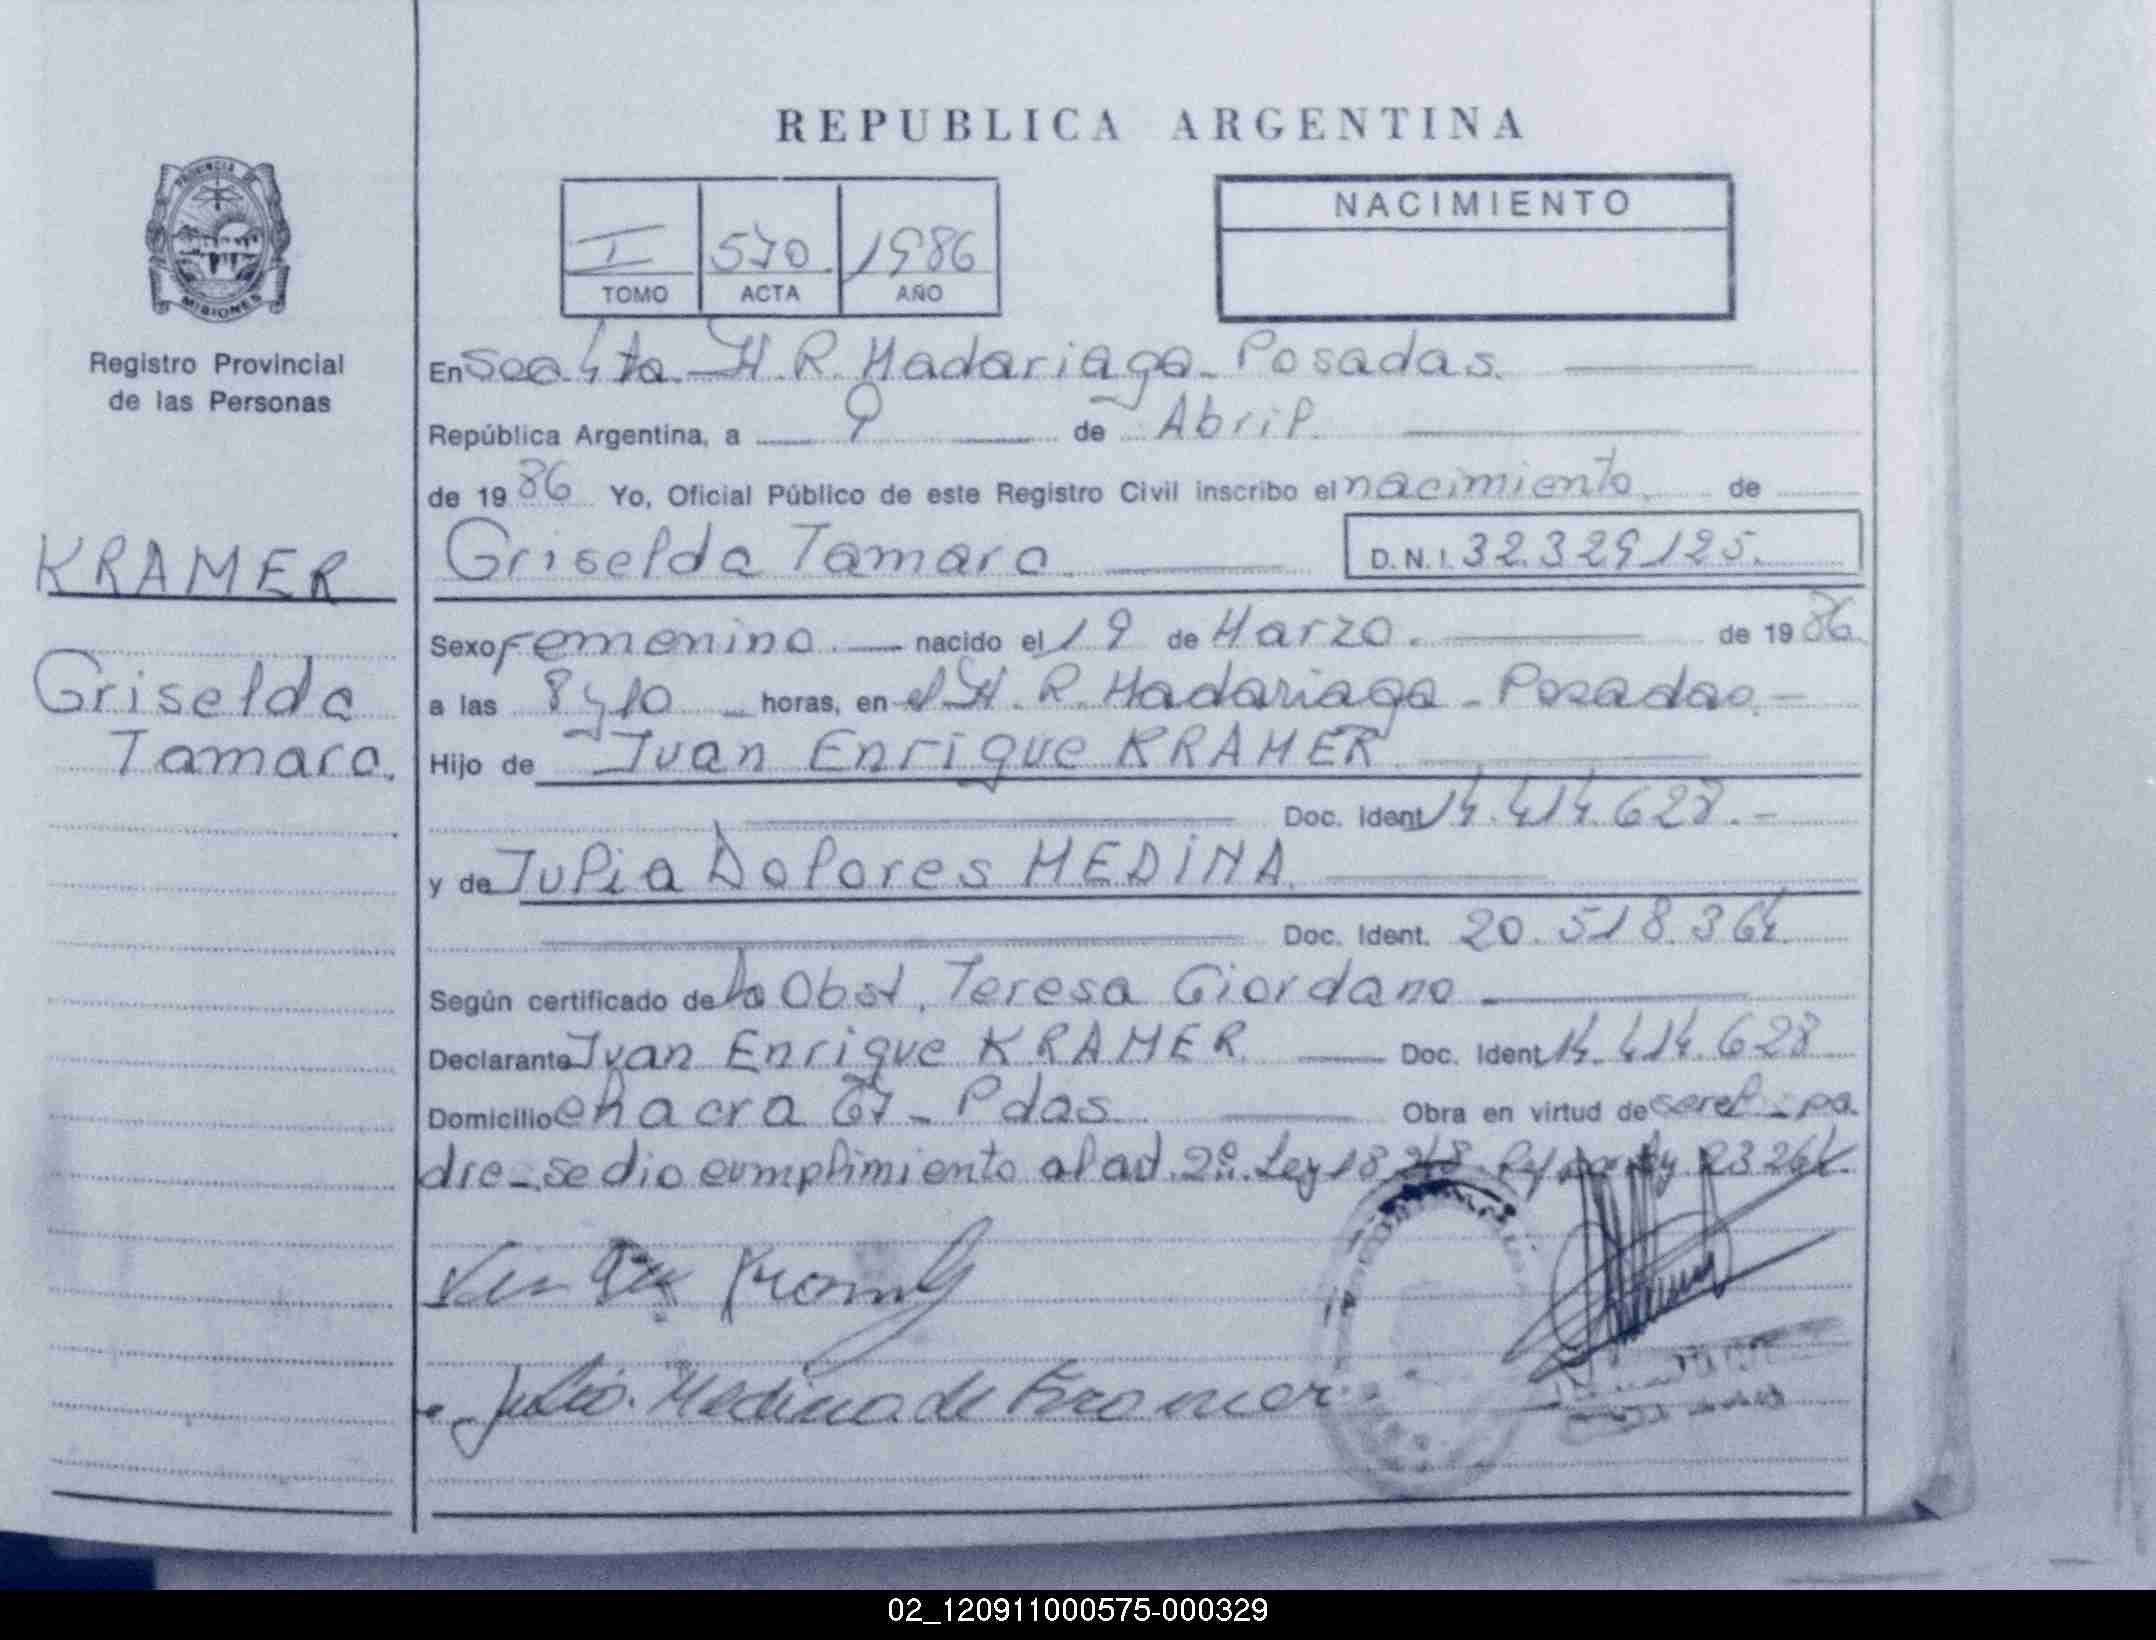 REPUBLICA ARGENTINA
PROVINCIA DE
MISIONES
Registro Provincial
de las Personas
I 570 1986
TOMO ACTA AÑO
NACIMIENTO
En Secc. 4ta. H. R. Madariaga - Posadas.
República Argentina, a 9 de Abril.
de 1986 Yo, Oficial Público de este Registro Civil inscribo el nacimiento de
KRAMER
Griselda Tamara
D.N.I. 32.329.125.
Sexo Femenino. nacido el 19 de Marzo. de 1986.
Griselda
Tamara.
a las 8 y 10 horas, en el H. R. Madariaga - Posadas. -
Hijo de Juan Enrique KRAMER
Doc. Ident. 14.414.628. -
y de Julia Dolores MEDINA.
Doc. Ident. 20.518.364.
Según certificado de la Obst. Teresa Giordano
Declarante Juan Enrique KRAMER. Doc. Ident. 14.414.628
Domicilio chacra 67 - Pdas Obra en virtud de ser el pa.
dre - se dio cumplimiento al art. 2º. Ley 18.248 Ley 23.264.
Julia. Medina de Kramer
02_120911000575-000329